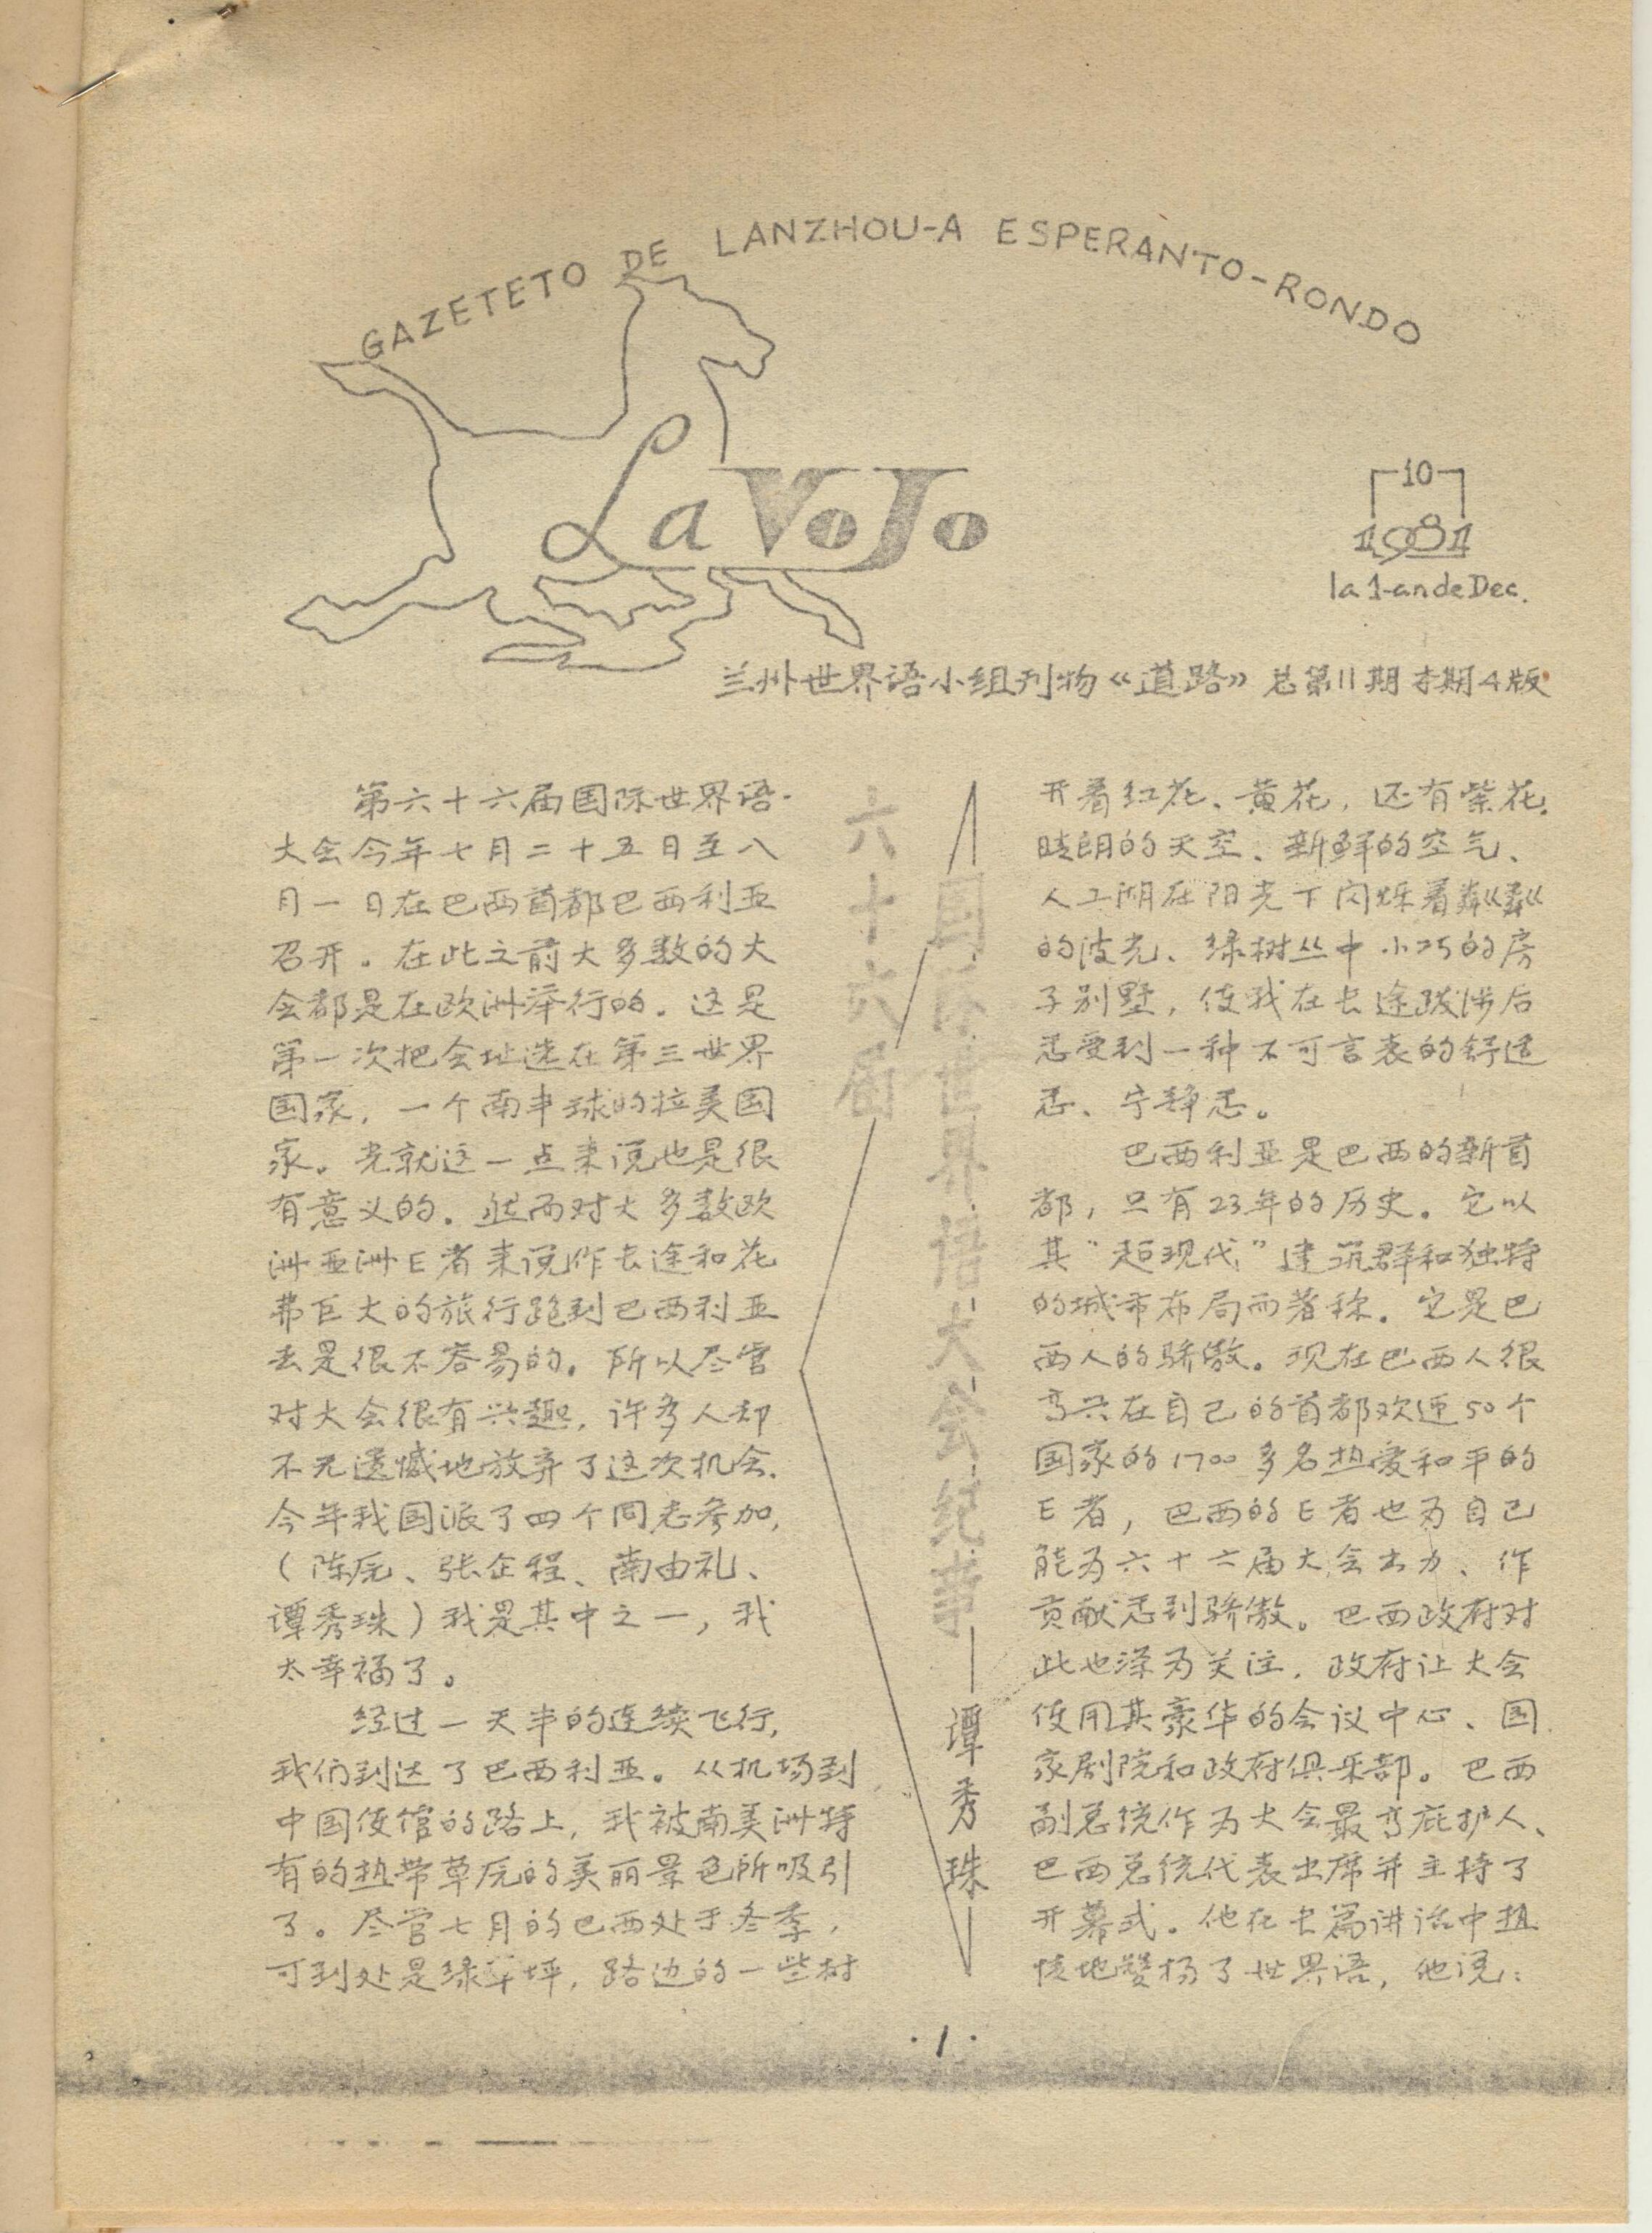 GAZETETO DE LANZHOU-A ESPERANTO-RONDO
La VoJo
10
1981
la 1-an de Dec.
兰州世界语小组刊物《道路》总第11期本期4版
第六十六届国际世界语
大会今年七月二十五日至八
月一日在巴西首都巴西利亚
召开。在此之前大多数的大
会都是在欧洲举行的。这是
第一次把会址选在第三世界
国家，一个南半球的拉美国
家。光就这一点来说也是很
有意义的。然而对大多数欧
洲亚洲E者来说作长途和花
费巨大的旅行跑到巴西利亚
去是很不容易的。所以尽管
对大会很有兴趣，许多人却
不无遗憾地放弃了这次机会.
今年我国派了四个同志参加,
（陈原、张企程、南由礼、
谭秀珠）我是其中之一，我
太幸福了。
经过一天半的连续飞行,
我们到达了巴西利亚。从机场到
中国使馆的路上，我被南美洲特
有的热带草原的美丽景色所吸引
了。尽管七月的巴西处于冬季，
可到处是绿草坪，路边的一些树
六十六届
国际世界语大会纪事
谭秀珠
开着红花、黄花，还有紫花.
晴朗的天空、新鲜的空气、
人工湖在阳光下闪烁着粼粼
的波光、绿树丛中小巧的房
子别墅，使我在长途跋涉后
感受到一种不可言表的舒适
感、宁静感。
巴西利亚是巴西的新首
都，只有23年的历史。它以
其“超现代”建筑群和独特
的城市布局而著称。它是巴
西人的骄傲。现在巴西人很
高兴在自己的首都欢迎50个
国家的1700多名热爱和平的
E者，巴西的E者也为自己
能为六十六届大会出力、作
贡献感到骄傲。巴西政府对
此也深为关注，政府让大会
使用其豪华的会议中心、国
家剧院和政府俱乐部。巴西
副总统作为大会最高庇护人、
巴西总统代表出席并主持了
开幕式。他在长篇讲话中热
情地赞扬了世界语，他说：
·1·